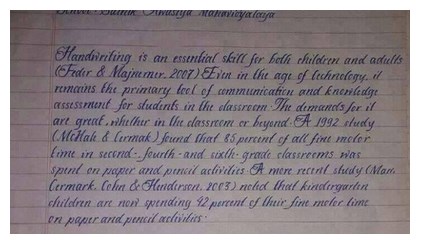 School - Buddhi Awasiya Mahavidyalaya
Handwriting is an essential skill for both children and adults
(Feder & Majnemer, 2007) Even in the age of technology, it
remains the primary tool of communication and knowledge
assessment for students in the classroom. The demands for it
are great, whether in the classroom or beyond. A 1992 study
(McHale & Cermak) found that 85 percent of all fine motor
time in second-, fourth- and sixth- grade classrooms was
spent on paper and pencil activities. A more recent study (Marr,
Cermark, Cohn & Henderson, 2003) noted that kindergarten
children are now spending 42 percent of their fine motor time
on paper and pencil activities.